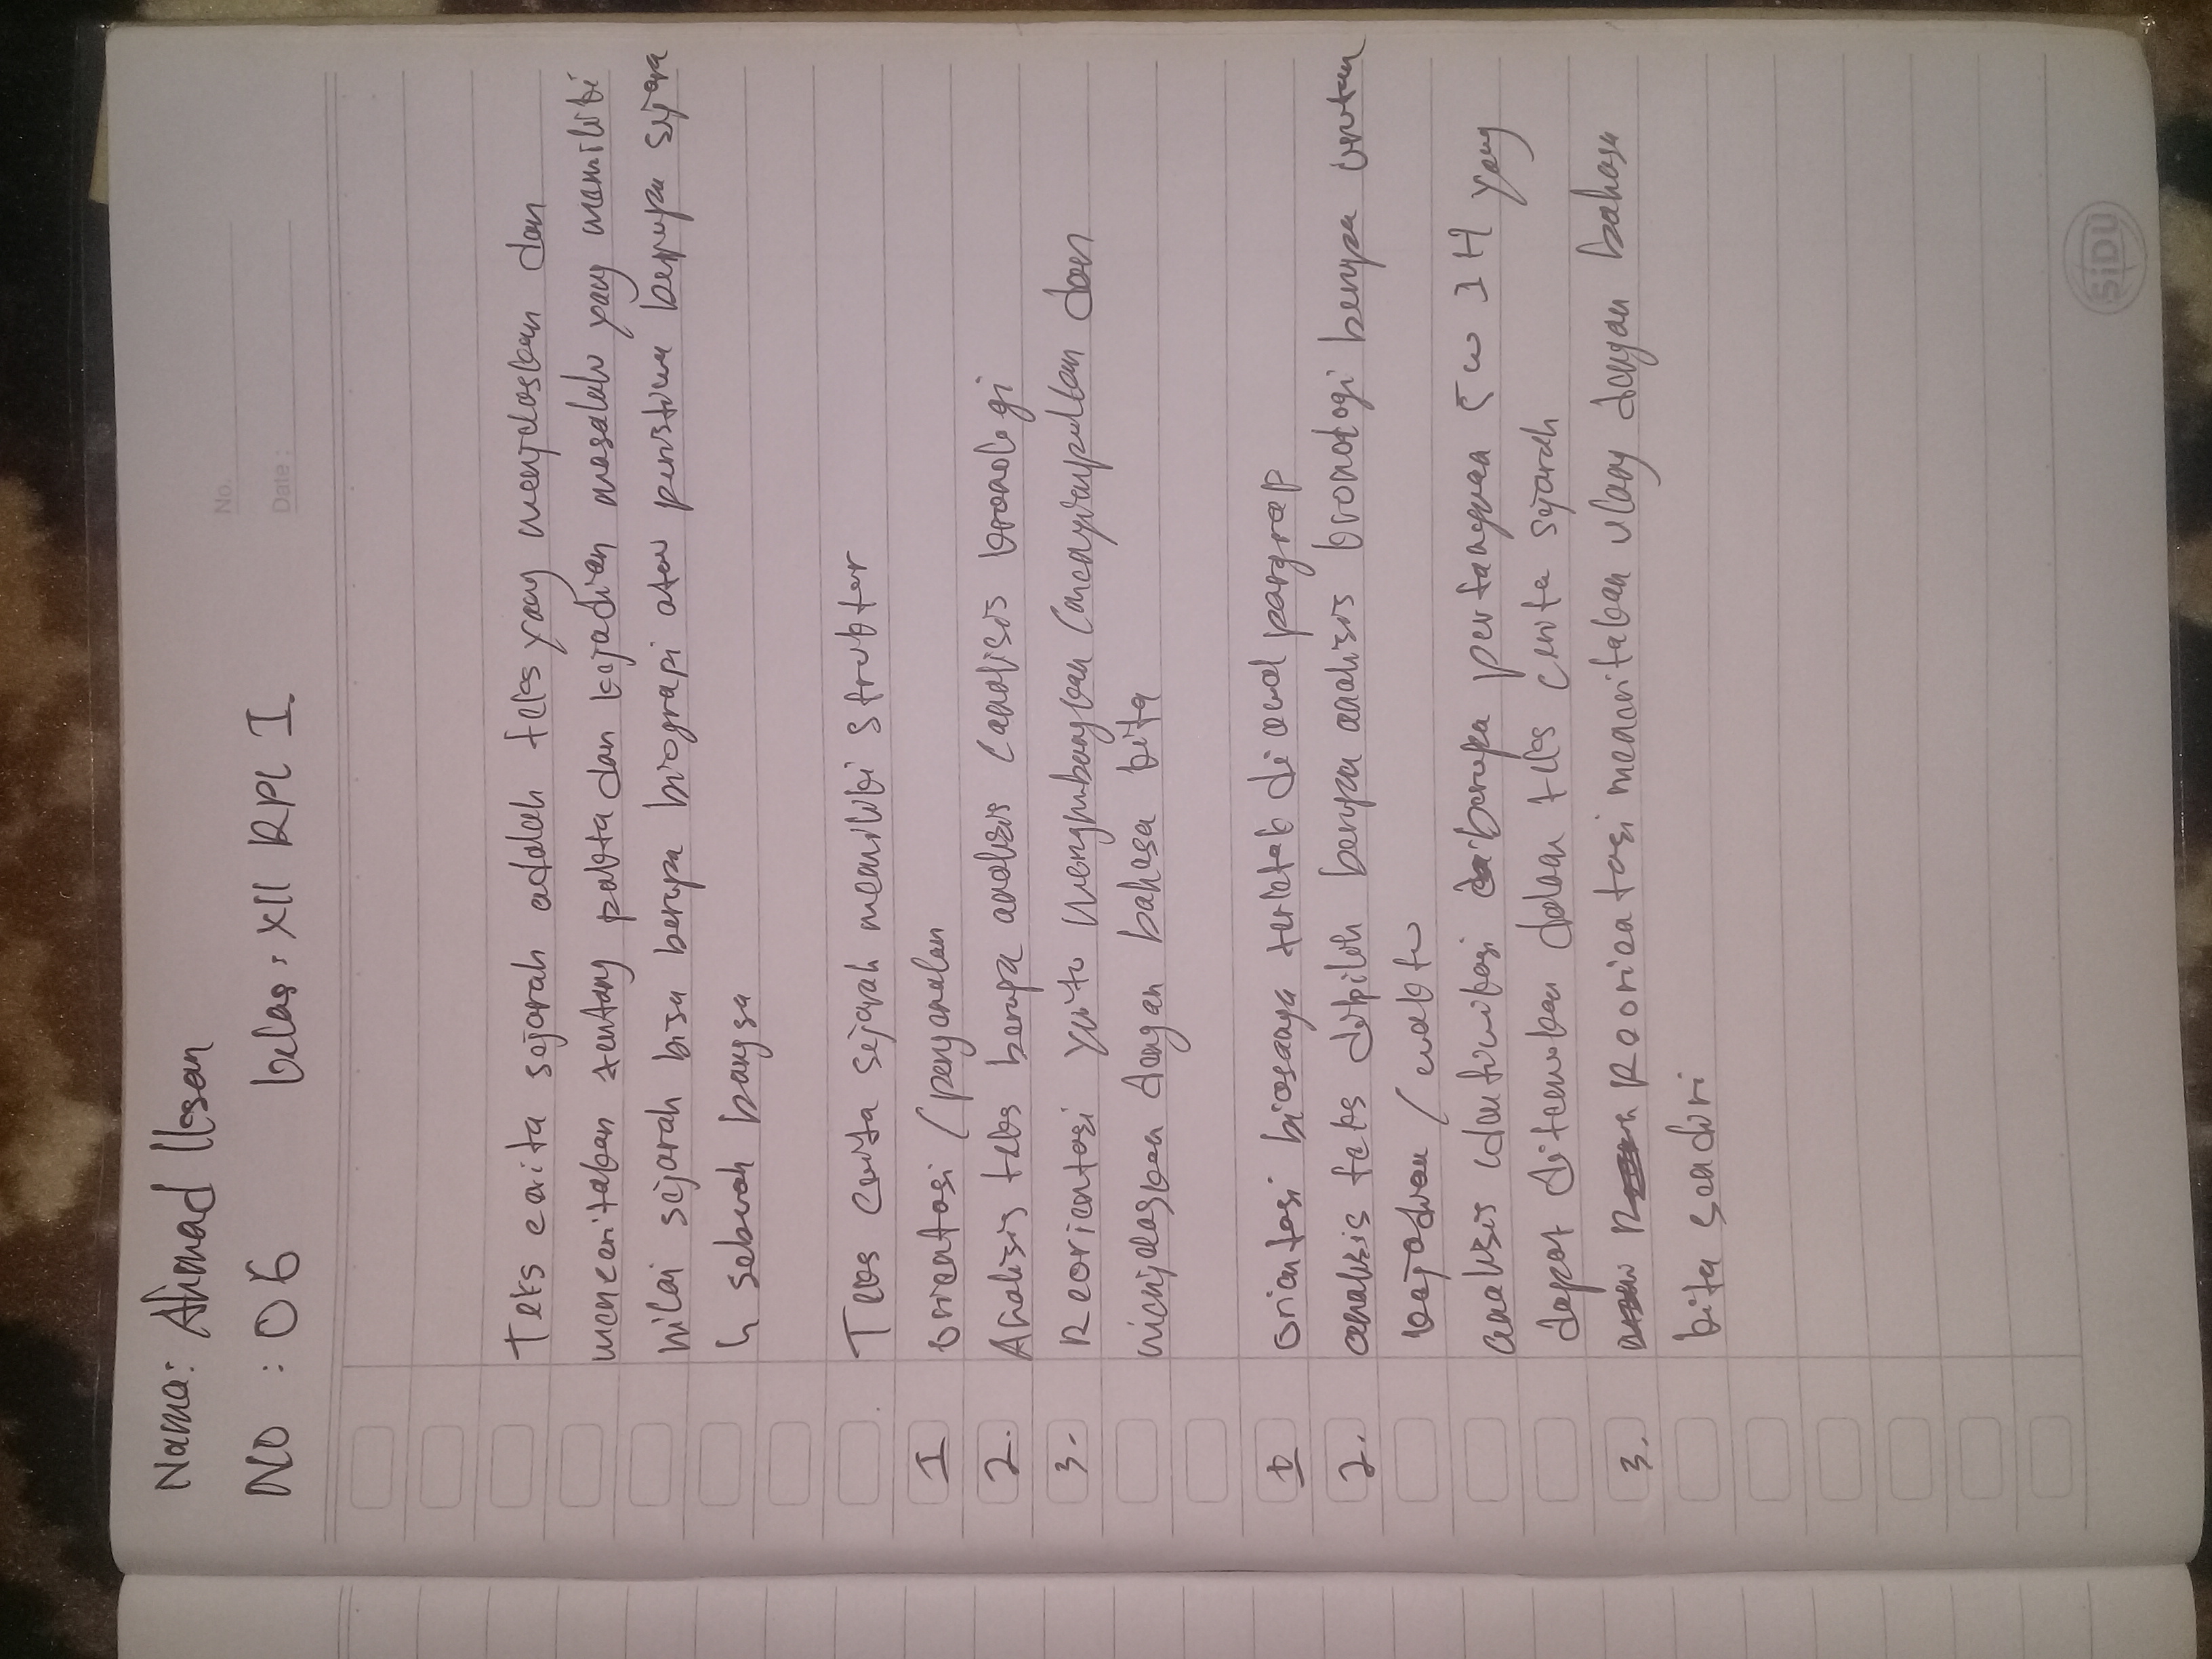 Nama: Ahmad Ilesan
No : 06 kelas: XII RPL I.
No.
Date :
Teks cerita sejarah adalah teks yang menjelaskan dan
menceritakan tentang pakta dan kejadian masalalu yang memiliki
nilai sejarah bisa berupa biograpi atau peristiwa berupa sejara
h sebuah bangsa
Teks cerita sejarah memiliki struktur
1 orientasi / pengenalan
2. Analisis teks berupa analisis (analisis kronologi
3. Reorientasi yaitu (menyimpulkan dan
menjelaskan dengan bahasa kita
1 orientasi biasanya terletak di awal pargrap
2. analisis teks dipilih berupa analisis kronologi berupa urutan
kejadian / waktu
analisis berupa pertanyaan 5 w 1 H yang
dapat ditemukan dalam teks cerita sejarah
3. Reorientasi menceritakan ulang dengan bahasa
kita sendiri
SiDU